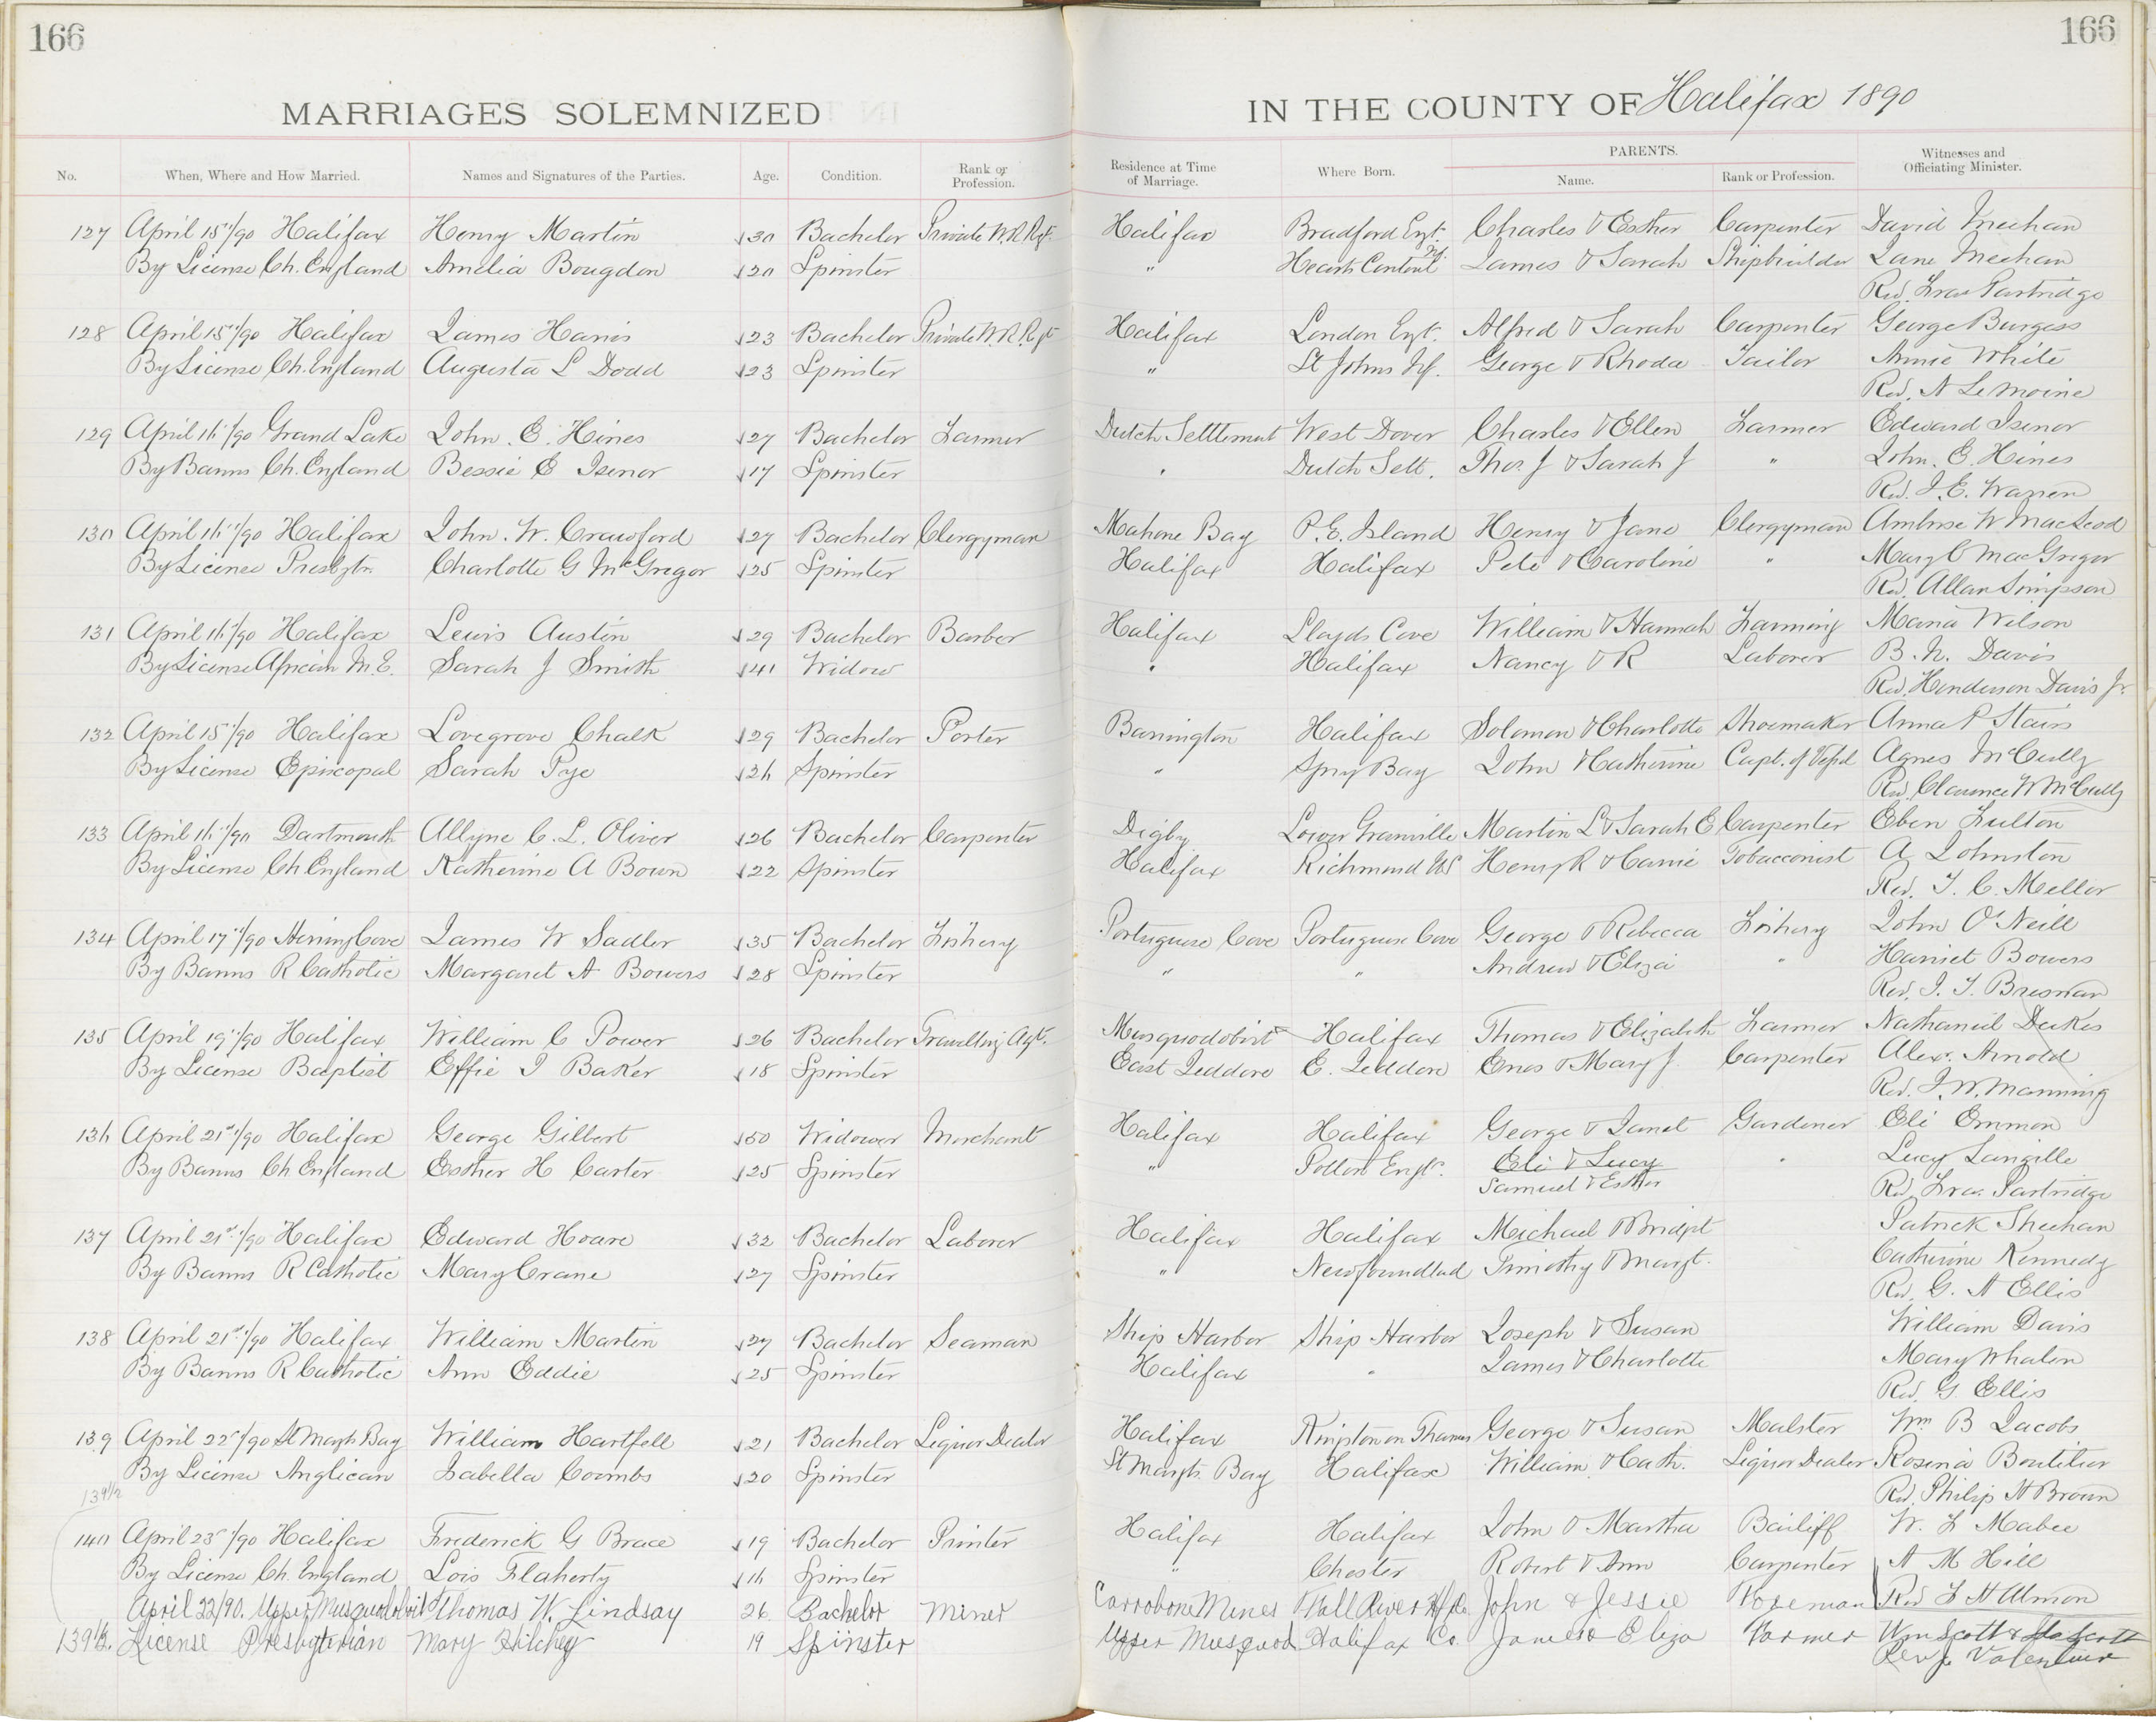 166
166
MARRIAGES SOLEMNIZED
IN THE COUNTY OF Halifax 1890
No. When, Where and How Married. Names and Signatures of the Parties. Age. Condition. Rank or Profession. Residence at Time of Marriage. Where Born. PARENTS. Name. Rank or Profession. Witnesses and Officiating Minister.
127 April 15"/90 Halifax Henry Martin 30 Bachelor Private W.R. Rgt. Halifax Bradford Engt. Charles & Esther Carpenter David Meehan
By License Ch. England Amelia Bougdon 20 Spinster " Hearts Content Nf. James & Sarah Shipbuilder Jane Meehan
Rev. Fras Partridge
128 April 15"/90 Halifax James Harris 23 Bachelor Private W.R. Rgt Halifax London Engt. Alfred & Sarah Carpenter George Burgess
By License Ch. England Augusta L Dodd 23 Spinster " St Johns Nf. George & Rhoda Tailor Annie White
Rev. A LeMoine
129 April 16"/90 Grand Lake John. E. Hines 27 Bachelor Farmer Dutch Settlement West Dover Charles & Ellen Farmer Edward Isenor
By Banns Ch. England Bessie E Isenor 17 Spinster " Dutch Sett. Thos. J & Sarah J " John. E. Hines
Rev. J. E. Warren
130 April 16"/90 Halifax John. W. Crawford 27 Bachelor Clergyman Mahone Bay P. E. Island Henry & Jane Clergyman Ambrse W MacLeod
By License Presbytn. Charlotte G McGregor 25 Spinster Halifax Halifax Pete & Caroline " Mary C MacGregor
Rev. Allan Simpson
131 April 16"/90 Halifax Lewis Austin 29 Bachelor Barber Halifax Lloyds Cove William & Hannah Farming Maria Wilson
By License African M.E. Sarah J Smith 41 Widow " Halifax Nancy & R Laborer B. N. Davis
Rev. Henderson Davis Jr.
132 April 15"/90 Halifax Lovegrove Chalk 29 Bachelor Porter Barrington Halifax Solomon & Charlotte Shoemaker Anna P Stairs
By License Episcopal Sarah Pye 26 Spinster " Spry Bay John & Catherine Capt. of Vessl Agnes McCully
Rev. Clarence W McCully
133 April 16"/90 Dartmouth Allyne C. L. Oliver 26 Bachelor Carpenter Digby Lower Granville Martin L & Sarah E Carpenter Eben Fulton
By License Ch England Katherine A Bown 22 Spinster Halifax Richmond US Henry R & Carrie Tobacconist A Johnston
Rev. T. C. Mellor
134 April 17"/90 Herring Cove James W Sadler 35 Bachelor Fishery Portuguese Cove Portuguese Cove George & Rebecca Fishery John O'Neill
By Banns R Catholic Margaret A Bowers 28 Spinster " " Andrew & Eliza " Harriet Bowers
Rev. J. T. Bresnan
135 April 19"/90 Halifax William C Power 26 Bachelor Travelling Agt. Musquodoboit Halifax Thomas & Elizabeth Farmer Nathaniel Dukes
By License Baptist Effie I Baker 18 Spinster East Jeddore E. Jeddore Enos & Mary J. Carpenter Alex. Arnold
Rev. J. W. Manning
136 April 21st/90 Halifax George Gilbert 50 Widower Merchant Halifax Halifax George & Janet Gardener Eli Emmon
By Banns Ch England Esther H Carter 25 Spinster " Potton Engt. Eli & Lucy " Lucy Langille
Samuel & Esther Rev. Fras. Partridge
137 April 21st/90 Halifax Edward Hoare 32 Bachelor Laborer Halifax Halifax Michael & Bridgt Patrick Sheehan
By Banns R Catholic Mary Crane 27 Spinster " Newfoundlad Timothy & Margt. Catherine Kennedy
Rev. G. A Ellis
138 April 21st/90 Halifax William Martin 27 Bachelor Seaman Ship Harbor Ship Harbor Joseph & Susan William Davis
By Banns R Catholic Ann Eddie 25 Spinster Halifax " James & Charlotte Mary Whalen
Rev. G Ellis
139 April 22"/90 St Margts Bay William Hartfell 21 Bachelor Liquor Dealer Halifax Kingston on Thames George & Susan Malster Wm B Jacobs
By License Anglican Isabella Coombs 20 Spinster St Margts. Bay Halifax William & Cath. Liquor Dealer Rosina Boutilier
139½ Rev. Philip H Brown
140 April 23"/90 Halifax Frederick G Brace 19 Bachelor Printer Halifax Halifax John & Martha Bailiff W. F Mabee
By License Ch. England Lois Flaherty 16 Spinster " Chester Robert & Ann Carpenter A M Hill
April 22/90. Upper Musquodoboit Thomas W. Lindsay 26 Bachelor Miner Carrobone Mines Fall River Hfx Co. John & Jessie Foreman Rev F H Almon
139½. License Presbyterian Mary Hilchey 19 Spinster Upper Musquod Halifax Co. James & Eliza Farmer Wm Scott & Ida Scott
Rev J Valentine